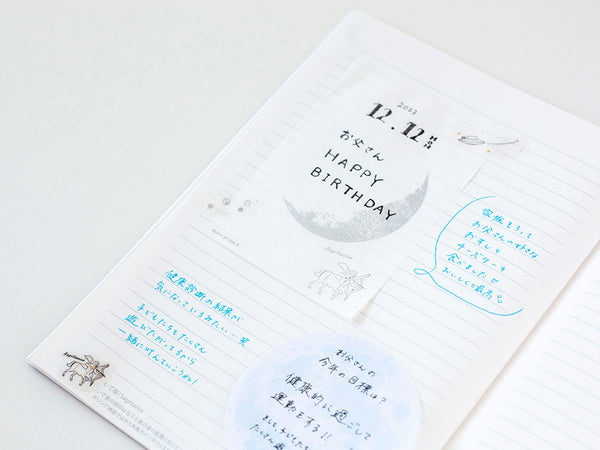 2023
12.12
お父さん
HAPPY
BIRTHDAY
moon phase
Sagittarius
家族そろって
お父さんの好きな
おすしと
チーズケーキ
食べました
おいしくて最高
健康診断の結果が
気になっているみたい…笑
子どもたちもたくさん
遊びたがってるから
一緒に叶えていこうね!
お父さんの
今年の目標は?
健康的に過ごして
運動をする!!
Sagittarius
いて座/Sagittarius